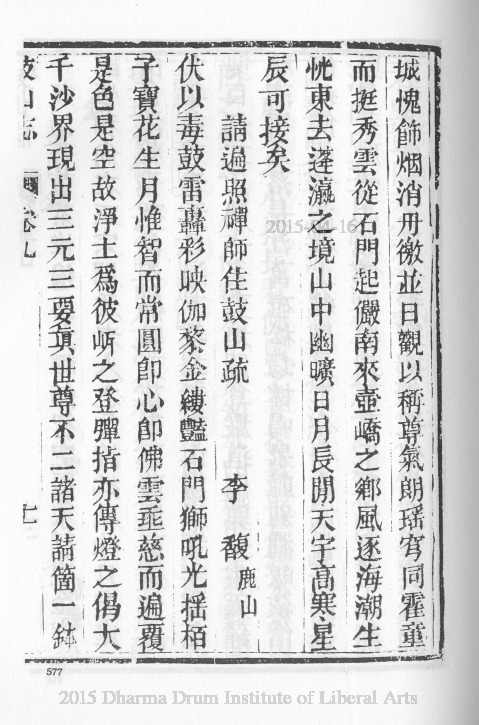 城愧飾烟消丹徼並日觀以稱尊氣朗瑶穹同霍童
而挺秀雲從石門起儼南來壷嶠之鄉風逐海潮生
恍東去蓬瀛之境山中幽曠日月長閒天宇高寒星
辰可接矣
請遍照禪師住鼓山疏 李馥鹿山
伏以毒鼓雷轟彩映伽黎金縷豔石門獅吼光揺栢
子寶花生月惟智而常圓卽心卽佛雲乖慈而遍覆
是色是空故淨土爲彼岍之登彈指亦傳燈之倡大
千沙界現出三元三要眞世尊不二諸天請箇一鉢
鼓山志 卷九 十一
577
2015-04-16
2015 Dharma Drum Institute of Liberal Arts